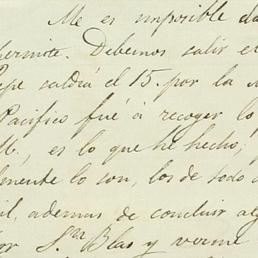 Me es imposible da
hermite. Debemos salir e
epe saldrá el 15. por la
Pacifico fué á recoger lo
es lo que he hecho;
lmente lo son, los de todo
il, ademas de concluir al
or Sn Blas y verme